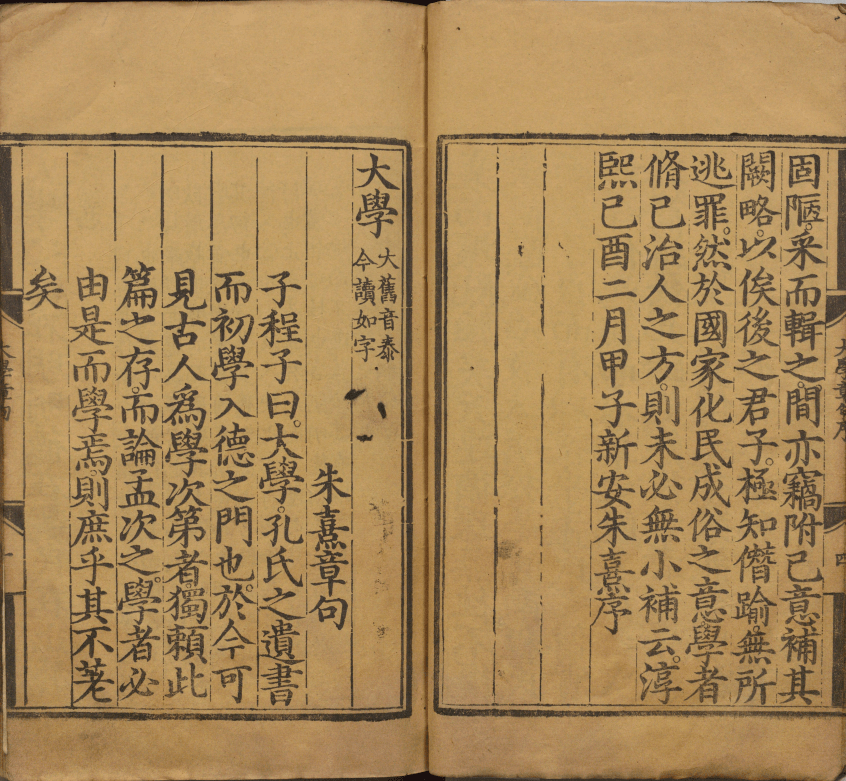 固陋。采而輯之。間亦竊附己意補其
闕略。以俟後之君子。極知僭踰。無所
逃罪。然於國家化民成俗之意。學者
脩己治人之方。則未必無小補云。淳
熙己酉二月甲子新安朱熹序
四
大學 大舊音泰
今讀如字
朱熹章句
子程子曰。大學。孔氏之遺書
而初學入德之門也。於今可
見古人爲學次第者。獨賴此
篇之存。而論孟次之。學者必
由是而學焉。則庶乎其不差
矣
大學章句
一